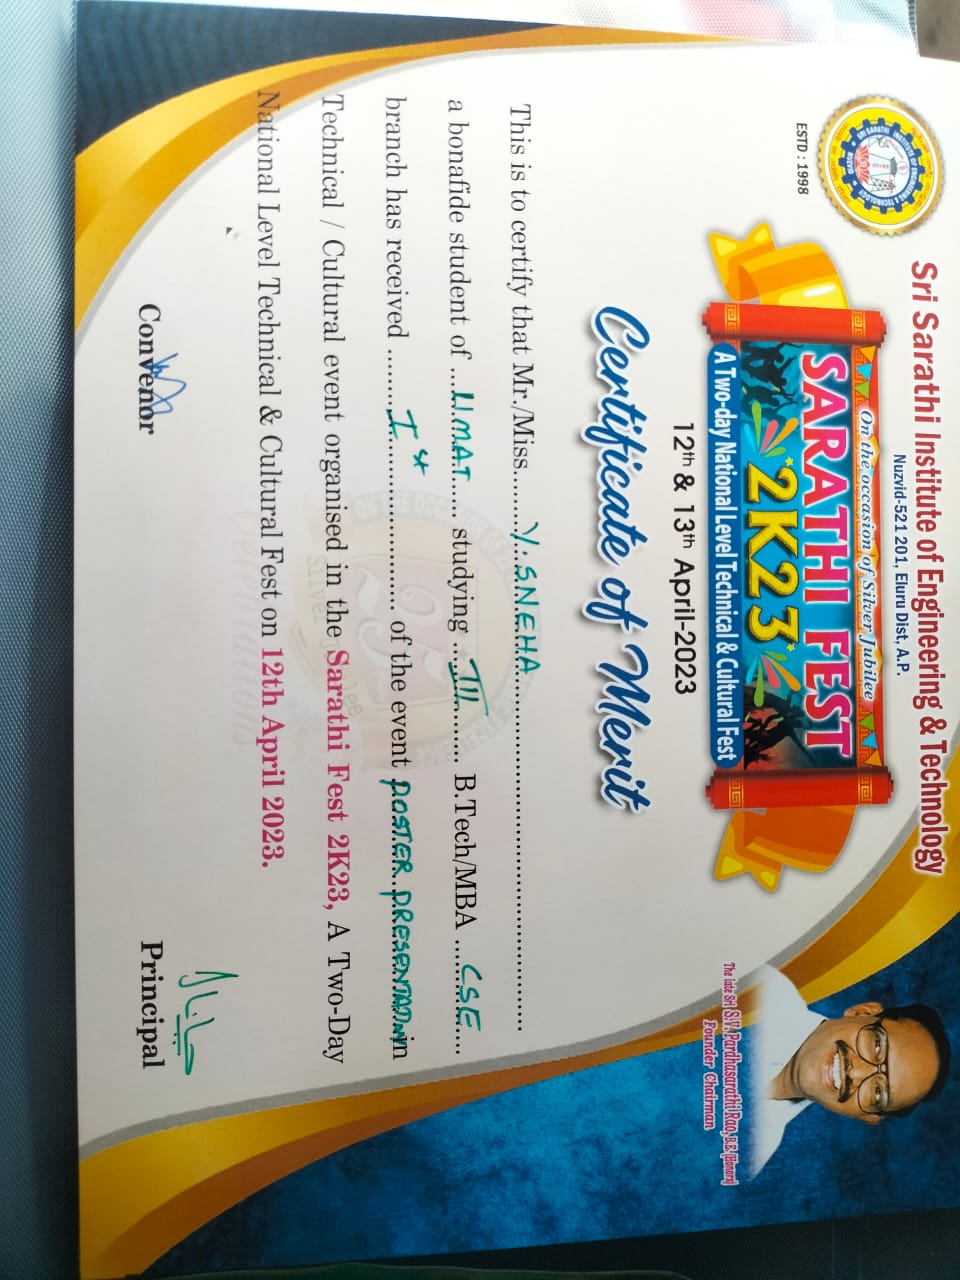 Sri Sarathi Institute of Engineering & Technology
Nuzvid-521 201, Eluru Dist, A.P.
ESTD : 1998
On the occasion of Silver Jubilee
SARATHI FEST
2K23
A Two-day National Level Technical & Cultural Fest
12th & 13th April-2023
The late Sri S.V. Pardhasarathi Rao, B.E. (Honors)
Founder Chairman
Certificate of Merit
This is to certify that Mr./Miss........Y. SNEHA........
a bonafide student of ... ...... studying ...III........ B.Tech/MBA ...CSE....
branch has received .........Ist.................. of the event POSTER PRESENTATION in
Technical / Cultural event organised in the Sarathi Fest 2K23, A Two-Day
National Level Technical & Cultural Fest on 12th April 2023.
25
Silver Jubilee
Celebrations
Convenor
Principal